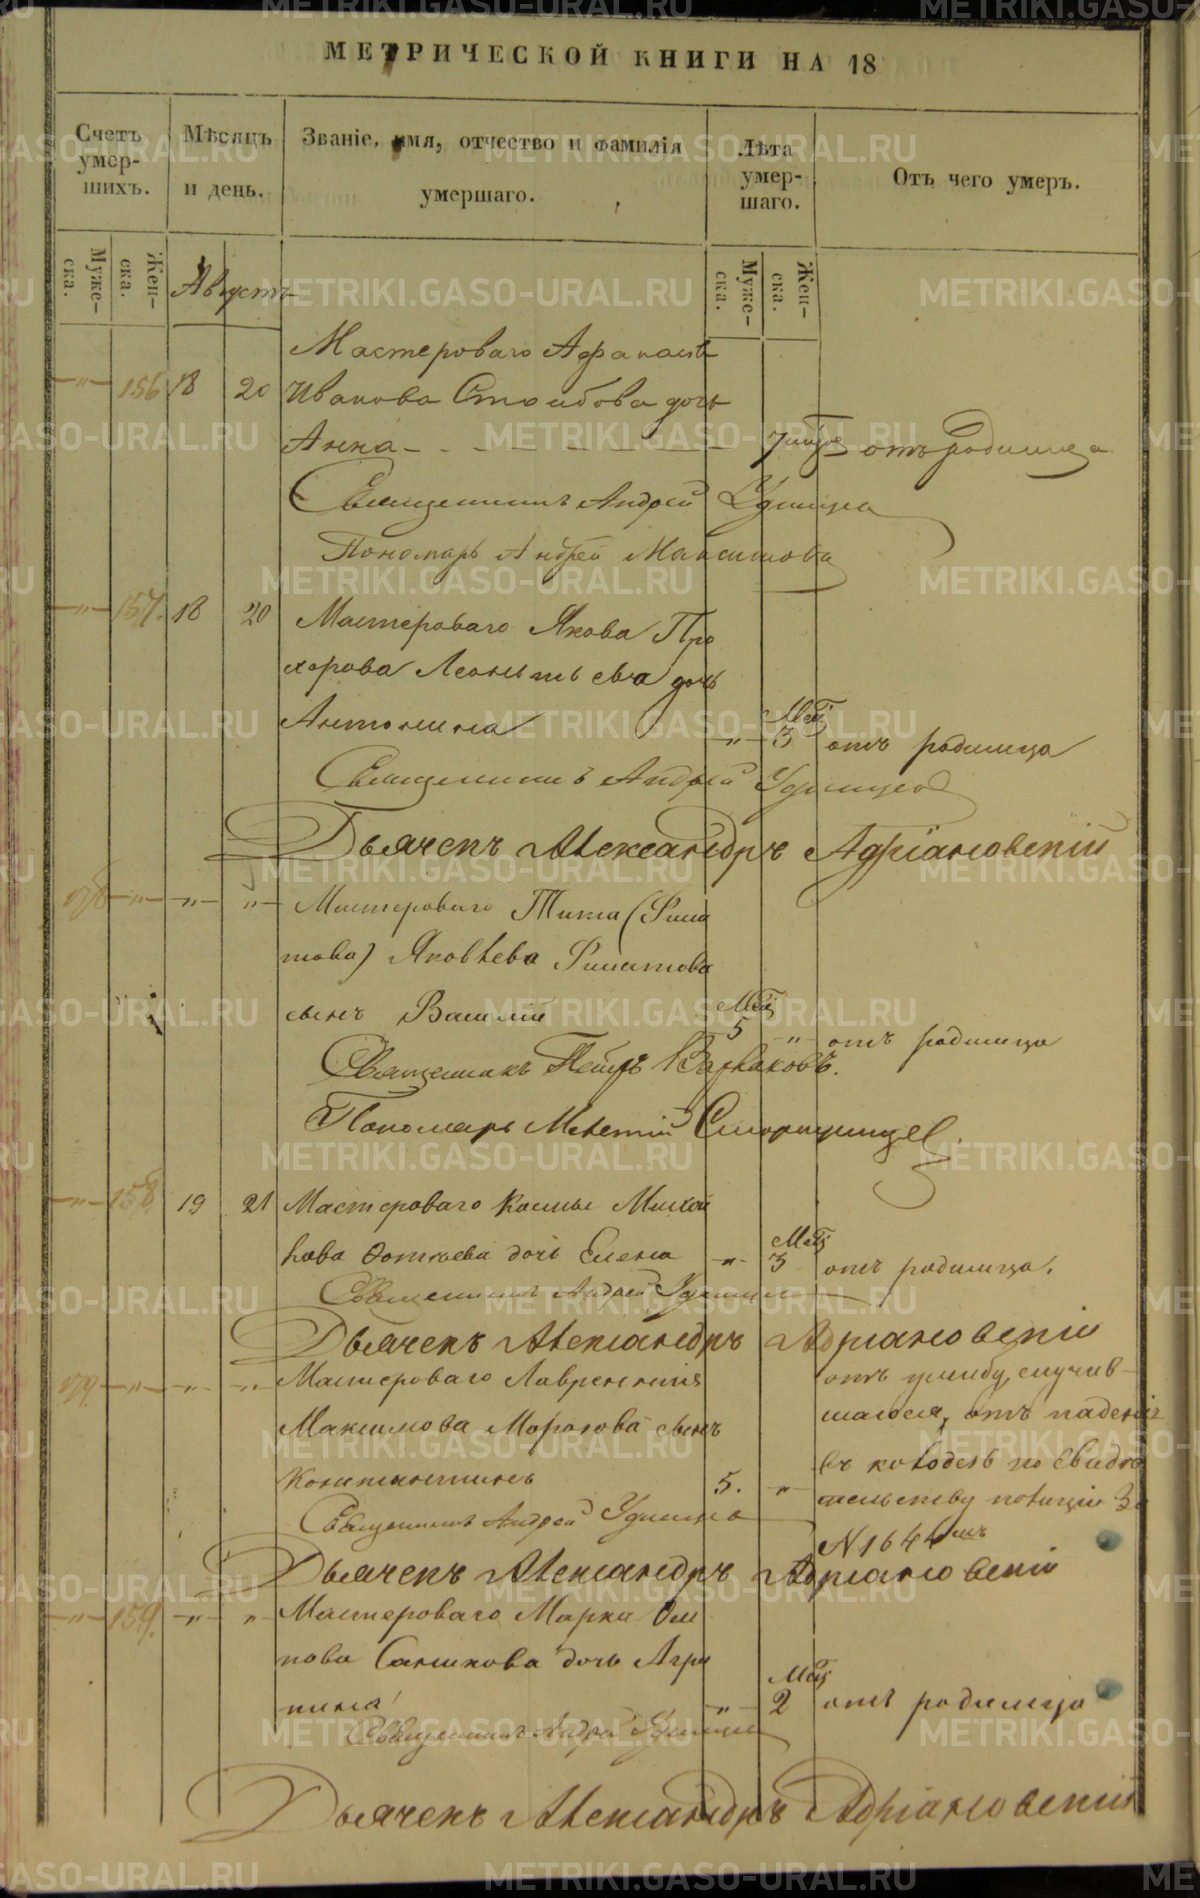 МЕТРИЧЕСКОЙ КНИГИ НА 18
Счетъ умер-шихъ.
Мѣсяцъ и день.
Званіе, имя, отчество и фамилія умершаго.
Лѣта умер-шаго.
Отъ чего умеръ.
Муже-ска.
Жен-ска.
Августъ
Муже-ска.
Жен-ска.
Мастероваго Афанасія
—"— 156 18 20 Иванова дочь
Анна — 7 отъ родимца
Священникъ Андрей Удинцо
Пономарь Андрей Максимовъ
—"— 157. 18 20 Мастероваго Якова Про
хорова Леонтьева дочь
Антонина —"— 3 Мѣс отъ родимца
Священникъ Андрей Удинцов
Дьячекъ Александръ Адріановскій
178 —"— —"— —"— Мастероваго Тита (Фила
това) Яковлева Филатова
сынъ Василій Мѣс 5 —"— отъ родимца
Священникъ Петръ Варлаковъ.
Пономарь Мелетій
—"— 158 19 21 Мастероваго Космы Михай
лова дочь Елена —"— Мѣс 3 отъ родимца.
Священникъ Андрей Удинцо
Дьячекъ Александръ Адріановскій
179. —"— —"— —"— Мастероваго Лаврентія
Максимова Морозова сынъ
Константинъ 5. "
отъ ушибу, случив-
шагося, отъ паденія
въ колодезь по свидѣ
тельству полиціи за
N 1644 мъ
Священникъ Андрей Удинцо
Дьячекъ Александръ Адріановскій
—"— 159. —"— " Мастероваго Марка Оси
пова Санникова дочь Агри
пина —"— Мѣс 2 отъ родимца
Священникъ Андрей Удинцо
Дьячекъ Александръ Адріановскій
METRIKI.GASO-URAL.RU